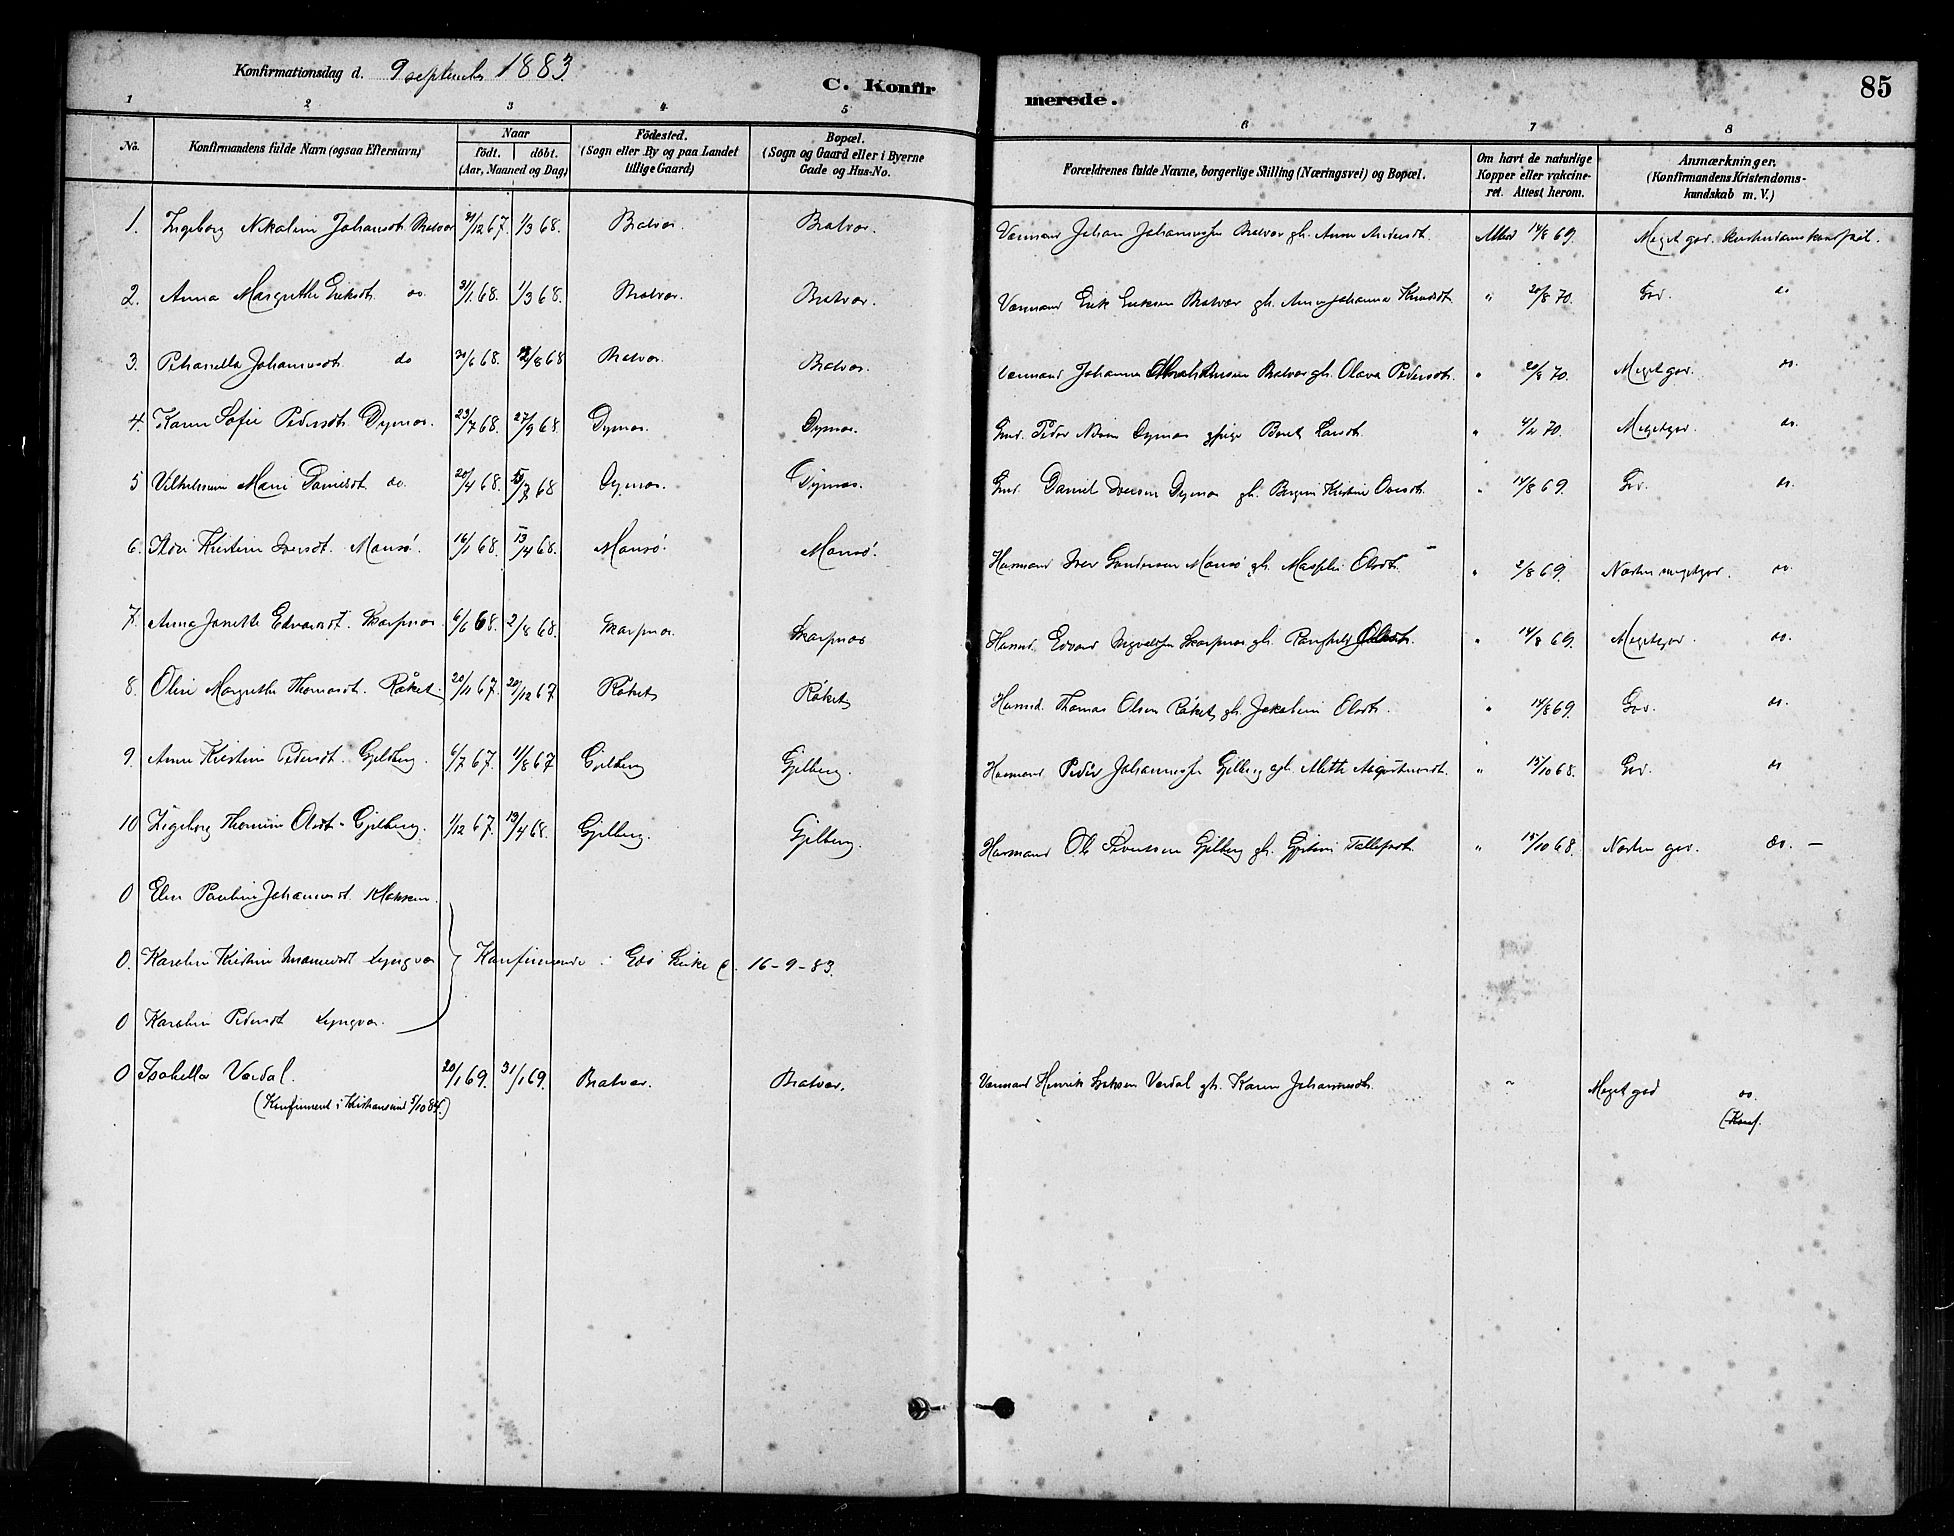 Konfirmationsdag d. 9 september 1883
C. Konfir merede.
85
1 2 3 4 5 6 7 8
No. Konfirmandens fulde Navn (ogsaa Efternavn) Naar födt. döbt. (Aar, Maaned og Dag) Födested. (Sogn eller By og paa Landet tillige Gaard) Bopæl. (Sogn og Gaard eller i Byerne Gade og Hus-No. Forældrenes fulde Navne, borgerlige Stilling (Næringsvei) og Bopæl. Om havt de naturlige Kopper eller vakcineret. Attest herom. Anmærkninger. (Konfirmandens Kristendomskundskab m. V.)
1. Ingeborg Nikoline Johansdt. Bratvær 21/12 67. 1/3 68. Bratvær. Bratvær. Værmand Johan Johannessen Bratvær gh. Anne Andersdt. Attest 14/8 69. Meget god. kristendomskundskab.
2. Anna Margrethe Eriksdt. do. 31/1 68. 1/3 68. Bratvær. Bratvær. Værmand Erik Eriksen Bratvær gh. Anne Johanna Knudsdt. " 20/8 70. God. do
3. Petranella Johannesdt. do 20/6 68. 12/8 68 Bratvær. Bratvær. Værmand Johannes Bratvær gh. Olava Pedersdt. " 20/8 70. Meget god. do.
4. Karen Sofie Pedersdt. Dyrnes. 23/7 68. 27/9 68. Dyrnes. Dyrnes. Gmd. Peder Dyrnes Beret Larsdt. " 4/2 70. Meget god. do.
5 Vilhelmine Marie Danielsdt. do. 20/4 68. 68 Dyrnes. Dyrnes. Gmd. Daniel Iversen Dyrnes gh. Kristine Ovesdt. " 14/8 69. God. do.
6. Kristine Iversdt. Monsø. 16/1 68. 13/4 68. Monsø. Monsø. Husmand Iver Gundersen Monsø gh. Olsdt. " 2/8 69. Næsten meget god. do.
7. Anna Janette Edvardsdt. Skarpnes. 6/6 68. 2/8 68. Skarpnes. Skarpnes Husmd. Edvard Skarpnes gh. Olsdt. " 14/8 69. Meget god. do.
8. Oline Margrethe Thomasdt. Røket. 20/11 67. 20/12 67 Røket Røket Husmd. Thomas Olsen Røket gh. Jakobine Olsdt. " 14/8 69. God. do.
9. Anne Kristine Pedersdt. Gjelberg. 6/7 67. 11/8 67 Gjelberg Gjelberg. Husmand Peder Johannessen Gjelberg gh. Mette Augustinusdt. " 15/10 68. God. do
10 Ingeborg Thomine Olsdt. Gjelberg. 1/12 67. 13/4 68. Gjelberg. Gjelberg. Husmand Ole Sivertsen Gjelberg gh. Gjertine Tollefsdt. " 15/10 68. Næsten god. do. –
0 Elen Pauline Johannesdt. Klakken.
0. Karoline Kristine Lyngvær Konfirmerede i Edø Kirke d. 16-9-83.
0 Karoline Pedersdt. Lyngvær.
0 Isabella Værdal. 20/1 69. 31/1 69. Bratvær. Bratvær. Værmand Henrik Eriksen Værdal gh. Karen Johannesdt. " Meget god do.
(Konfirmeret i Kristiansund 5/10 84.) (Konf.